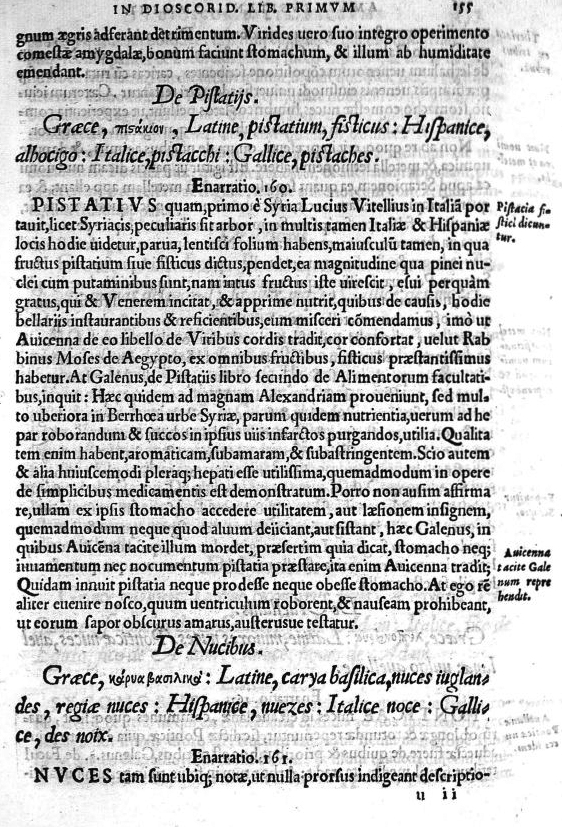 IN DIOSCORID. LIB. PRIMVM 155
gnum ægris adferant detrimentum. Virides uero suo integro operimento
comestæ amygdalæ, bonum faciunt stomachum, & illum ab humiditate
emendant.
De Pistatijs.
Græce, πισάκιον, Latine, pistatium, fisticus: Hispanice,
alhocigo: Italice, pistacchi: Gallice, pistaches.
Enarratio. 160.
PISTATIVS quam, primo è Syria Lucius Vitellius in Italiā por
tauit, licet Syriacis, peculiaris sit arbor, in multis tamen Italiæ & Hispaniæ
locis hodie uidetur, parua, lentisci folium habens, maiusculū tamen, in qua
fructus pistatium siue fisticus dictus, pendet, ea magnitudine qua pinei nu-
clei cum putaminibus sunt, nam intus fructus iste uirescit, esui perquàm
gratus, qui & Venerem incitat, & apprime nutrit, quibus de causis, hodie
bellariis instaurantibus & reficientibus, eum misceri cōmendamus, imò ut
Auicenna de eo libello de Viribus cordis tradit, cor confortat, uelut Rab
binus Moses de Aegypto, ex omnibus fructibus, fisticus præstantissimus
habetur. At Galenus, de Pistatiis libro secundo de Alimentorum facultati-
bus, inquit: Hæc quidem ad magnam Alexandriam proueniunt, sed mul-
to uberiora in Berrhœa urbe Syriæ, parum quidem nutrientia, uerum ad he
par roborandum & succos in ipsius uiis infarctos purgandos, utilia. Qualita
tem enim habent, aromaticam, subamaram, & subastringentem. Scio autem
& alia huiuscemodi pleraq; hepati esse utilissima, quemadmodum in opere
de simplicibus medicamentis est demonstratum. Porro non ausim affirma
re, ullam ex ipsis stomacho accedere utilitatem, aut læsionem insignem,
quemadmodum neque quod aluum deiiciant, aut sistant, hæc Galenus, in
quibus Auicēna tacite illum mordet, præsertim quia dicat, stomacho neq;
iuuamentum nec nocumentum pistatia præstare, ita enim Auicenna tradit;
Quidam innuit pistatia neque prodesse neque obesse stomacho. At ego rē
aliter euenire nosco, quum uentriculum roborent, & nauseam prohibeant,
ut eorum sapor obscurus amarus, austerusue testatur.
Pistacia fi-
stici dicun-
tur.
Auicenna
tacite Gale
num repre
hendit.
De Nucibus.
Græce, κάρυα βασιλικά: Latine, carya basilica, nuces iuglan-
des, regiæ nuces: Hispanice, nuezes: Italice noce: Galli-
ce, des noix.
Enarratio. 161.
NVCES tam sunt ubiq; notæ, ut nulla prorsus indigeant descriptio-
u ii